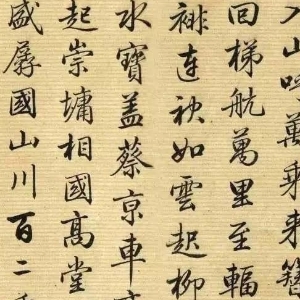 入山呼萬乘來簪
回梯航萬里至輻
連袂如雲起柳
水寶盖蔡京車
起崇墉相國高堂
盛孱國山川百二